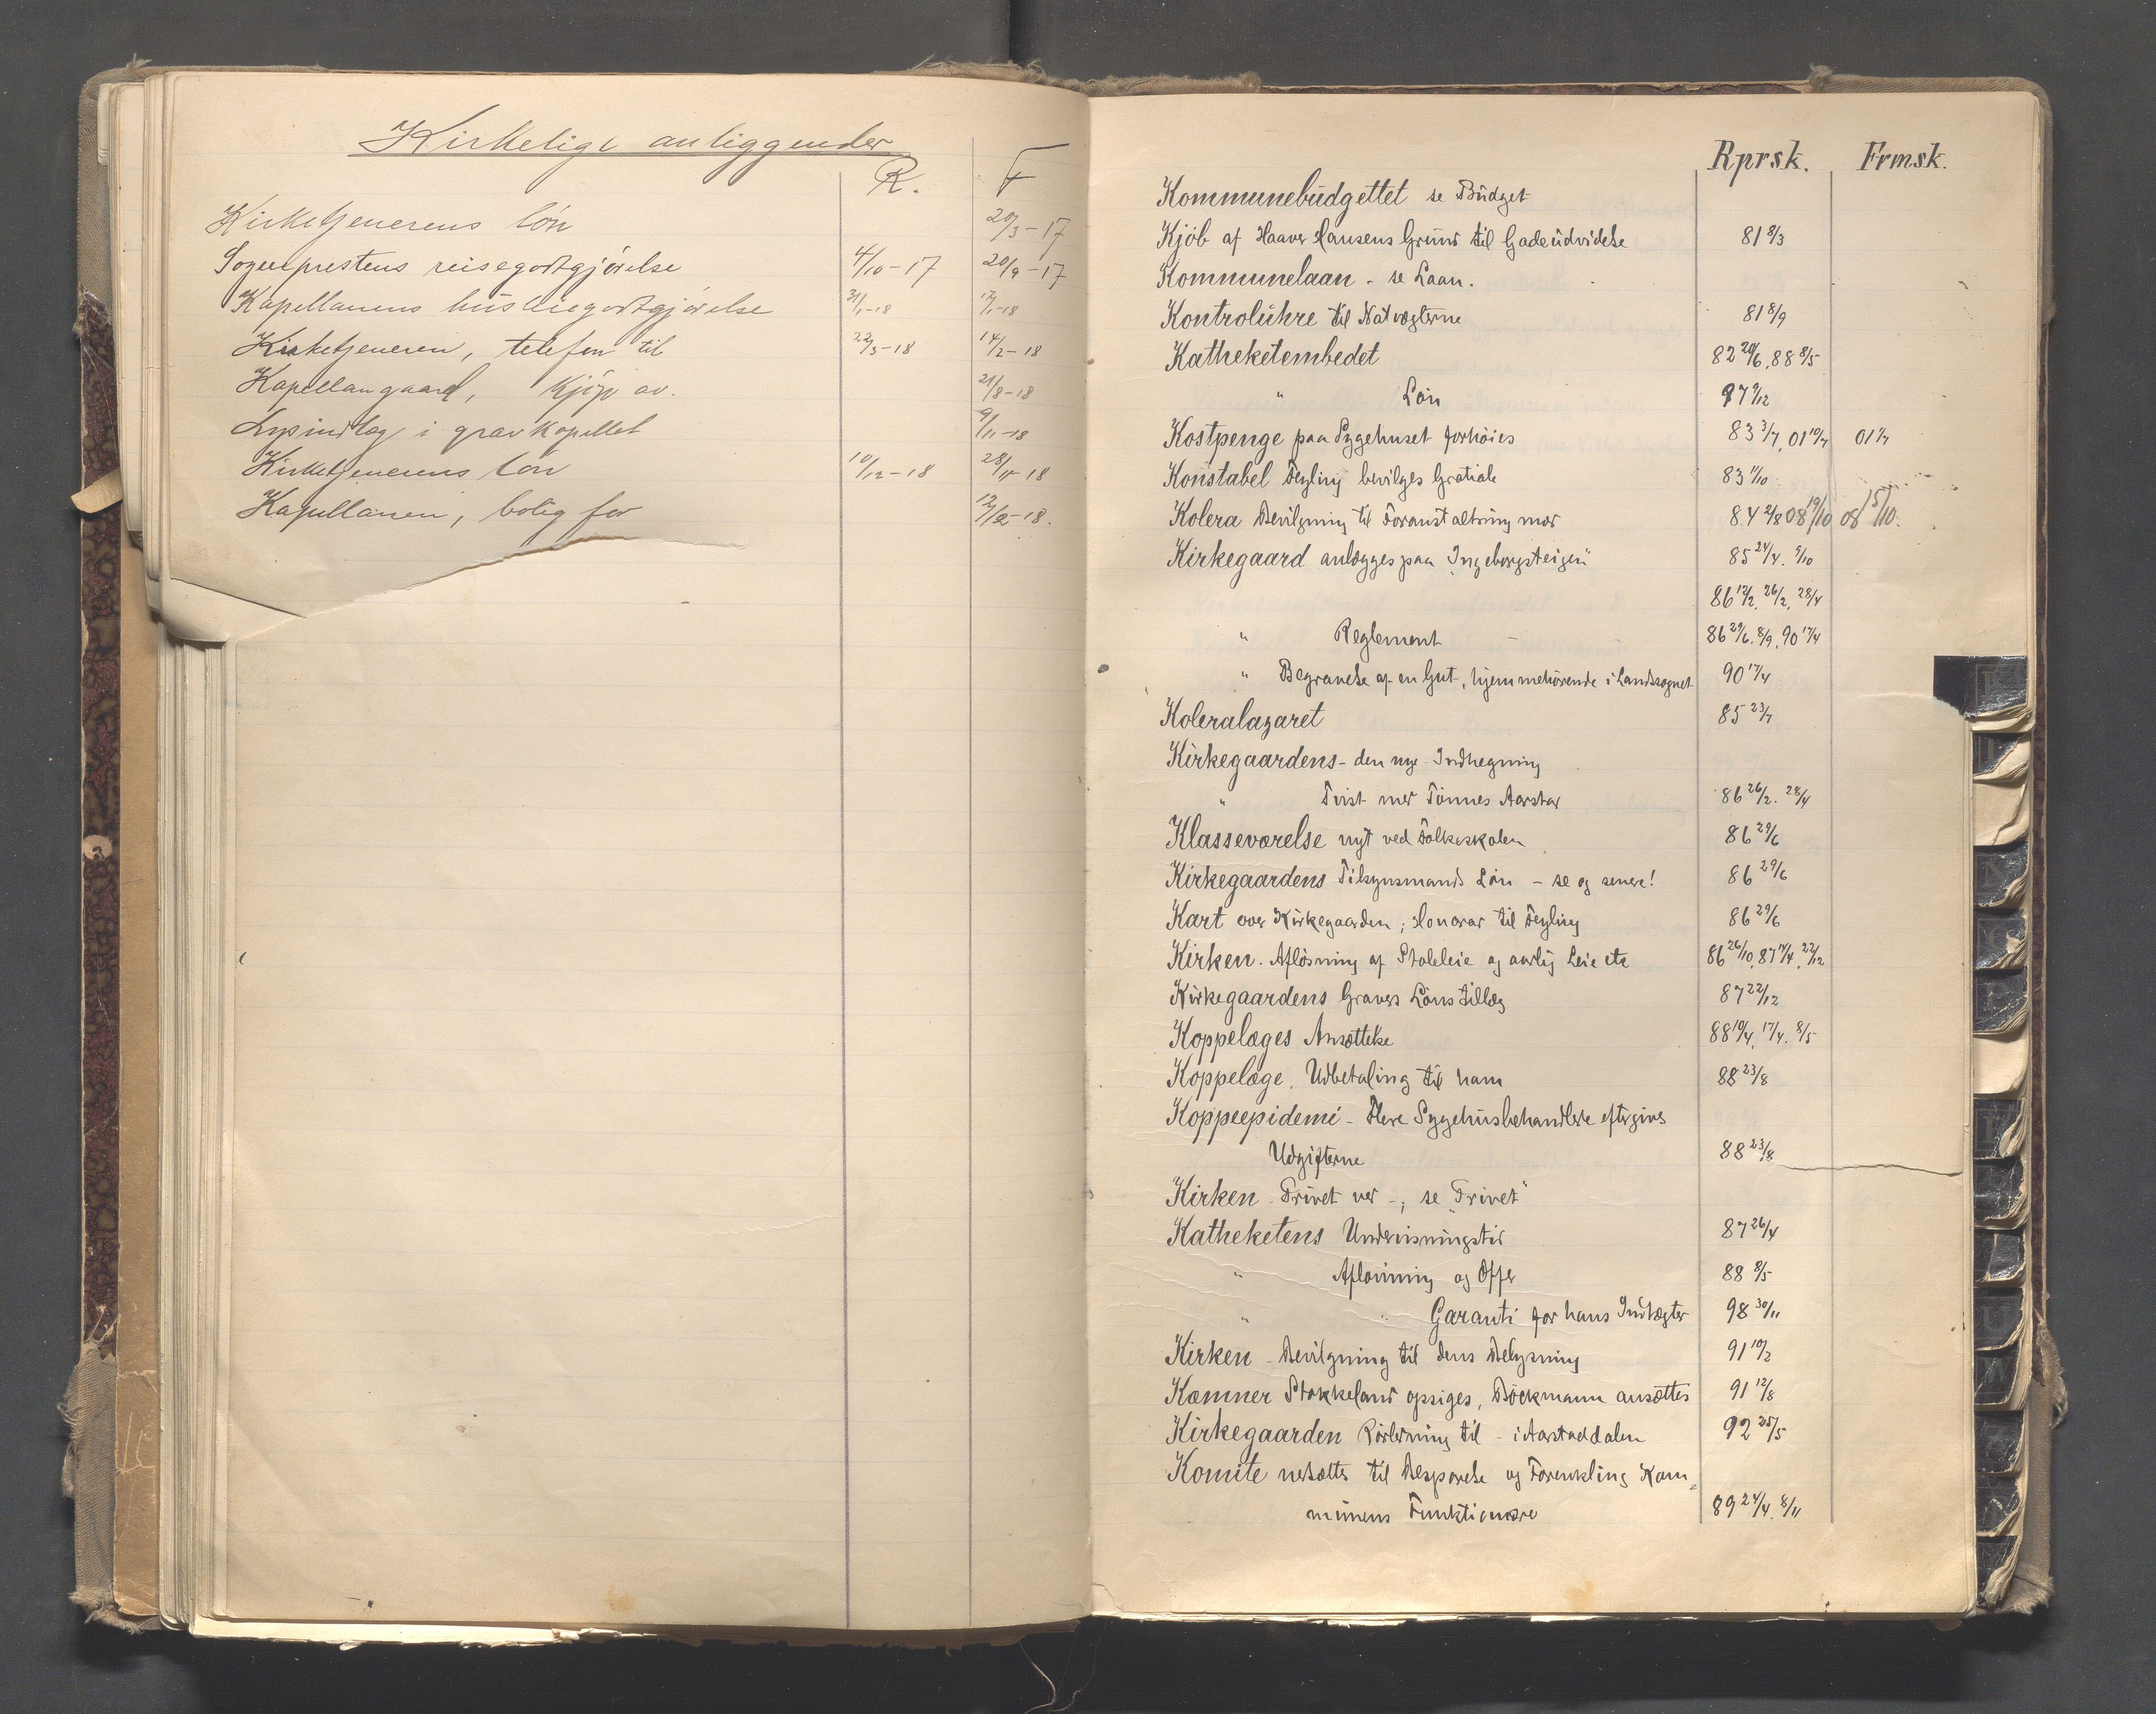 Kirkelige anliggender
R. F
Kirketjenerens lön 20/3-17
Sogneprestens reisegodtgjörelse 4/10-17 20/9-17
Kapellanens husleiegodtgjörelse 31/1-18 17/1-18
Kirketjeneren, telefon til 22/3-18 14/2-18
Kapellangaard, kjöp av. 21/8-18
Lysindlæg i gravkapellet 9/11-18
Kirketjenerens lön 10/12-18 28/11-18
Kapellanen, bolig for 12/12-18.
Rprsk. Frmsk.
Kommunebudgettet se Budget
Kjöb af Haaver Hansens Grund til Gadeudvidelse 81 8/3
Kommunelaan - se Laan.
Kontroluhre til Natvægterne 81 8/9
Katheketembedet 82 20/6, 88 8/5
" Lön 97 9/12
Kostpenge paa Sygehuset forhöies 83 3/7, 01 10/7 01 4/7
Konstabel Feyling bevilges Gratiale 83 11/10
Kolera Bevilgning til Foranstaltning mod 84 2/8 08 19/10 08 15/10.
Kirkegaard anlægges paa "Ingebergsteigen" 85 24/4. 5/10
86 12/2, 26/2, 28/4
" Reglement 86 29/6. 8/9, 90 17/4
" Begravelse af en Gut, hjemmehörende i Landsognet 90 17/4
Koleralazaret 85 23/7
Kirkegaardens - den nye - Indhegning
" Tvist med Tönnes Aarstad 86 26/2. 28/4
Klasseværelse nyt ved Folkeskolen 86 29/6
Kirkegaardens Tilsynsmands Lön - se og senere! 86 29/6
Kart over Kirkegaarden; Honorar til Feyling 86 29/6
Kirken. Aflösning af Stoleleie og aarlig Leie etc 86 26/10, 87 14/4, 22/12
Kirkegaardens Gravers Lönstillæg 87 22/12
Koppelæges Ansættelse 88 10/4, 17/4. 8/5
Koppelæge, Udbetaling til ham 88 23/8
Koppeepidemi - Flere Sygehusbehandlede eftergives
Udgifterne 88 23/8
Kirken - Privet ved -, se "Privet"
Katheketens Undervisningstid 87 26/4
" Aflönning og Offer 88 8/5
" " Garanti for hans Indtægter 98 30/11
Kirken - Bevilgning til dens Belysning 91 10/2
Kæmner Stokkeland opsiges, Böckmann ansættes 91 12/8
Kirkegaarden Rörledning til - i Aarstaddalen 92 25/5
Komite nedsættes til Besparelse og Forenkling Kom-
munens Funktionære 89 24/4. 8/11